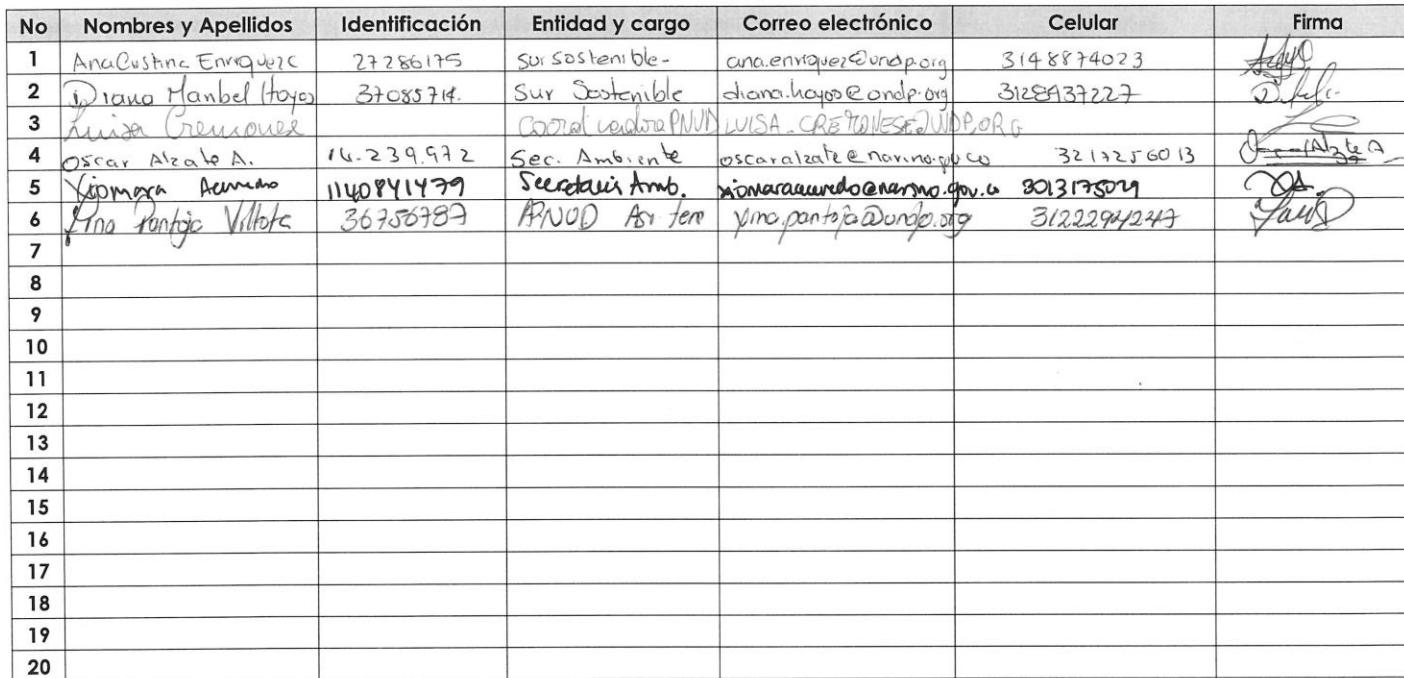 No Nombres y Apellidos Identificación Entidad y cargo Correo electrónico Celular Firma
1 Ana Cristina Enriquez 27286175 Sur sostenible- ana.enriquez@undp.org 3148874023
2 Diana Maribel Hoyos 37085714. Sur Sostenible diana.hoyos@undp.org 3128937227
3 Luisa Cremonese Coordinadora PNUD LUISA.CREMONESE@UNDP.ORG
4 Oscar Alzate A. 16.239.972 Sec. Ambiente oscaralzate@narino.gov.co 3217256013
5 Xiomara Acevedo 1140841479 Secretaria Amb. xiomaraacevedo@narino.gov.co 3013175029
6 Yina Pantoja Villota 36756787 PNUD yina.pantoja@undp.org 3122294247
7
8
9
10
11
12
13
14
15
16
17
18
19
20